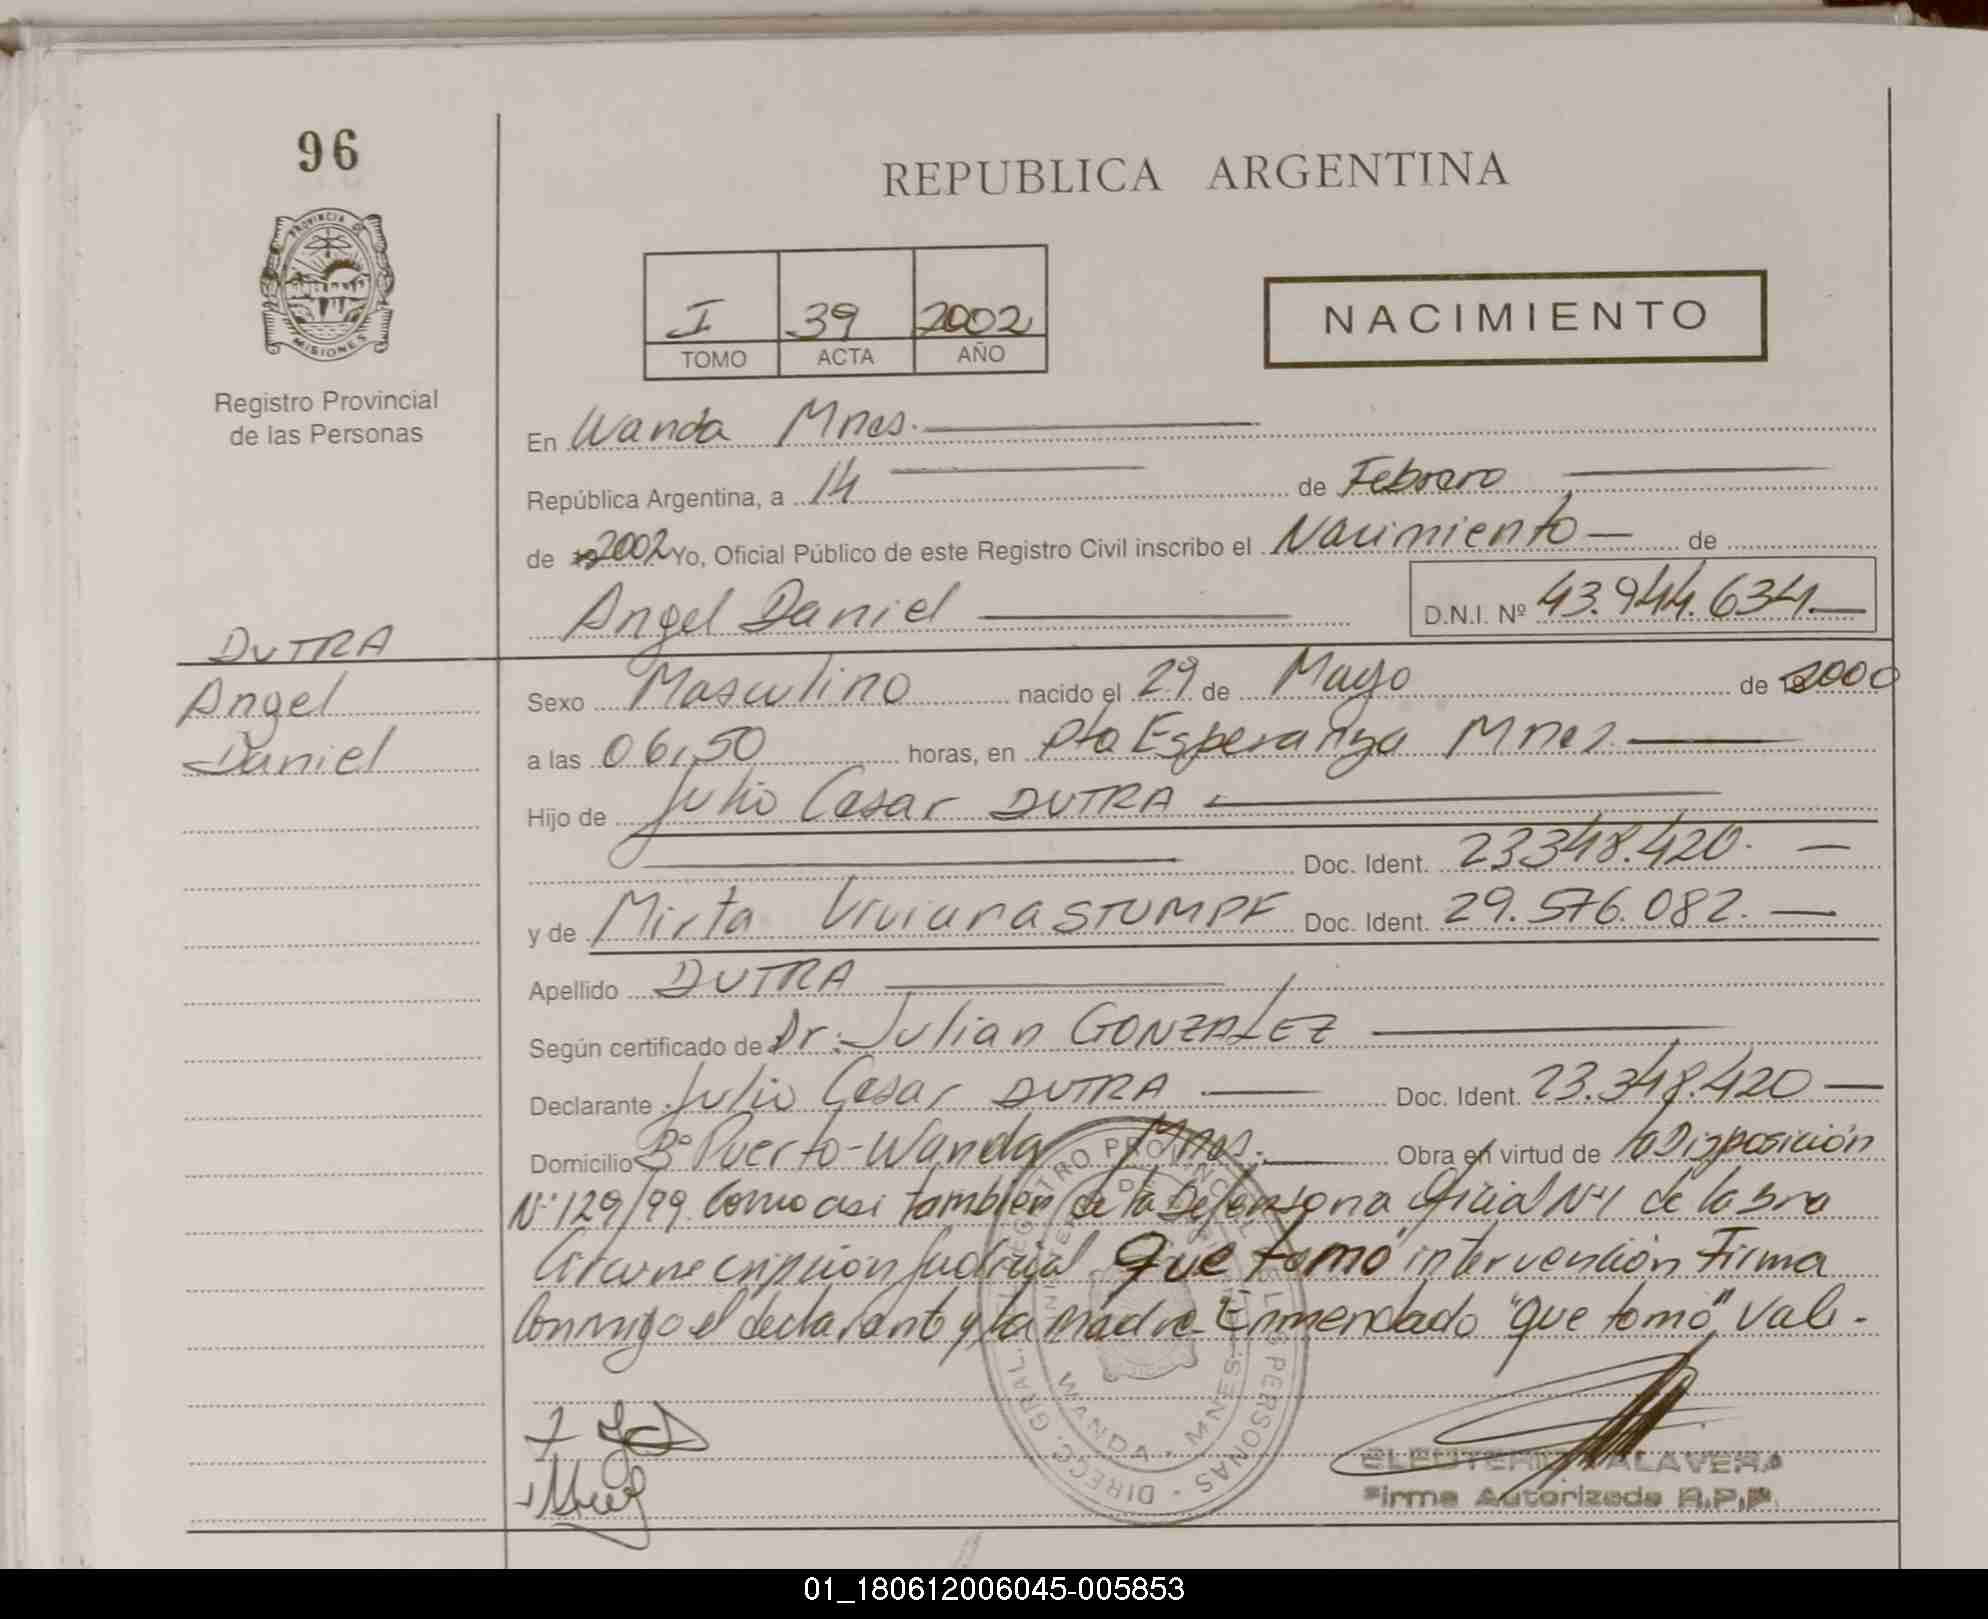 96
REPUBLICA ARGENTINA
PROVINCIA DE
MISIONES
I 39 2002
TOMO ACTA AÑO
NACIMIENTO
Registro Provincial
de las Personas
En Wanda Mnes.
República Argentina, a 14 de Febrero
de 2002 Yo, Oficial Público de este Registro Civil inscribo el Nacimiento de
Angel Daniel D.N.I. Nº 43.944.634
DUTRA
Angel
Daniel
Sexo Masculino nacido el 29 de Mayo de 2000
a las 06,50 horas, en Pto Esperanza Mnes.
Hijo de Julio Cesar DUTRA
Doc. Ident. 23.348.420.
y de Mirta Viviana STUMPF Doc. Ident. 29.576.082.
Apellido DUTRA
Según certificado de Dr. Julian GONZALEZ
Declarante Julio Cesar DUTRA Doc. Ident. 23.348.420
Domicilio Bº Puerto-Wanda Mnes. Obra en virtud de la Disposición
Nº 129/99 como asi tambien de la Defensoria Oficial Nº1 de la 3ra
Circunscripción Judicial que tomó intervención Firma
Conmigo el declarante y la madre. Enmendado "que tomó" Vale.
DIRECC. GRAL. REGISTRO PROVINCIAL DE LAS PERSONAS
WANDA - MNES.
ELEUTERIO TALAVERA
Firma Autorizada R.P.P.
01_180612006045-005853